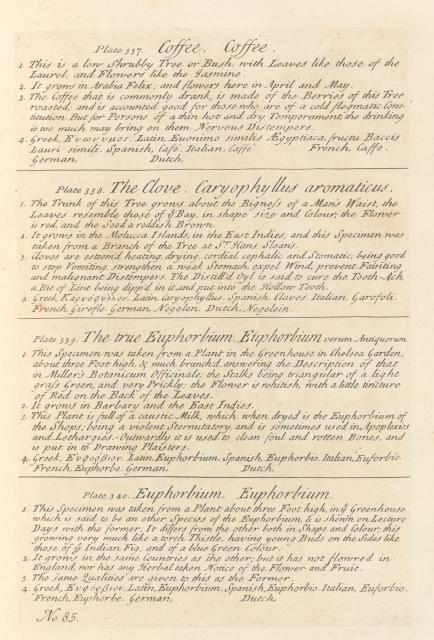 Plate 337. Coffee. Coffee.
1. This is a low Shrubby Tree or Bush with Leaves like those of the
Laurel, and Flowers like the Jasmine.
2. It grows in Arabia Felix; and flowers here in April and May.
3. The Coffee that is commonly drank, is made of the Berries of this Tree
roasted, and is accounted good for those who are of a cold flegmatic Cons-
titution. But for Persons of a thin hot and dry Temperament, the drinking
it too much may bring on them Nervous Distempers.
4. Greek, Latin, Euonimo similis Ægyptiaca, fructu Baccis
Lauri simili. Spanish, Café. Italian. Caffe. French, Caffe.
German, Dutch,
Plate 338. The Clove. Caryophyllus aromaticus.
1. The Trunk of this Tree grows about the Bigness of a Man's Waist, the
Leaves resemble those of ye Bay, in shape size and Colour; the Flower
is red, and the Seed a reddish Brown.
2. It grows in the Molucca Islands, in the East Indies; and this Specimen was
taken from a Branch of the Tree at Sr. Hans Sloan's.
3. Cloves are esteem'd heating, drying, cordial, cephalic and Stomatic, being good
to stop Vomiting, strengthen a weak Stomach, expel Wind, prevent Fainting
and malignant Distempers. The Distill'd Oyl is said to cure the Tooth-Ach,
a Bit of Lint being dipp'd in it, and put into the Hollow Tooth.
4. Greek, Latin, Caryophyllus. Spanish, Clavos. Italian, Garofoli.
French, Girofle. German, Negelen. Dutch, Negelein.
Plate 339. The true Euphorbium. Euphorbium verum Antiquorum.
1. This Specimen was taken from a Plant in the Greenhouse in Chelsea Garden,
about three Foot high, & much branch'd, answering the Description of that
in Miller's Botanicum Officinale; the Stalks being triangular of a light
grass Green, and very Prickly; the Flower is whitish, with a little tincture
of Red on the Back of the Leaves.
2. It grows in Barbary and the East Indies.
3. This Plant is full of a caustic Milk, which when dryed is the Euphorbium of
the Shops, being a violent Sternutatory, and is sometimes used in Apoplexies
and Lethargies. Outwardly it is used to clean foul and rotten Bones, and
is put in to Drawing Plaisters.
4. Greek, Ευφορβιον. Latin, Euphorbium. Spanish, Euphorbio. Italian, Euforbio.
French, Euphorbe. German, Dutch.
Plate 340. Euphorbium. Euphorbium.
1. This Specimen was taken from a Plant about three Foot high, in ye Greenhouse
which is said to be an other Species of the Euphorbium, & is shewn on Lecture
Days with the former. It differs from the other both in Shape and Colour: this
growing very much like a torch Thistle, having young Buds on the Sides like
those of ye Indian Fig, and of a blue Green Colour.
2. It grows in the same Countries as the other; but it has not flowred in
England, nor has any Herbal taken Notice of the Flower and Fruit.
3. The same Qualities are given to this as the Former.
4. Greek, Ευφορβιον. Latin, Euphorbium. Spanish, Euphorbio. Italian, Euforbio.
French, Euphorbe. German, Dutch.
No. 85.